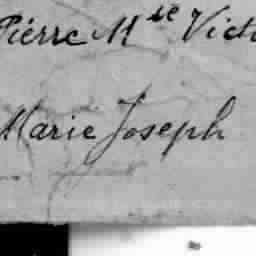 Pierre Mie Vict
Marie Joseph